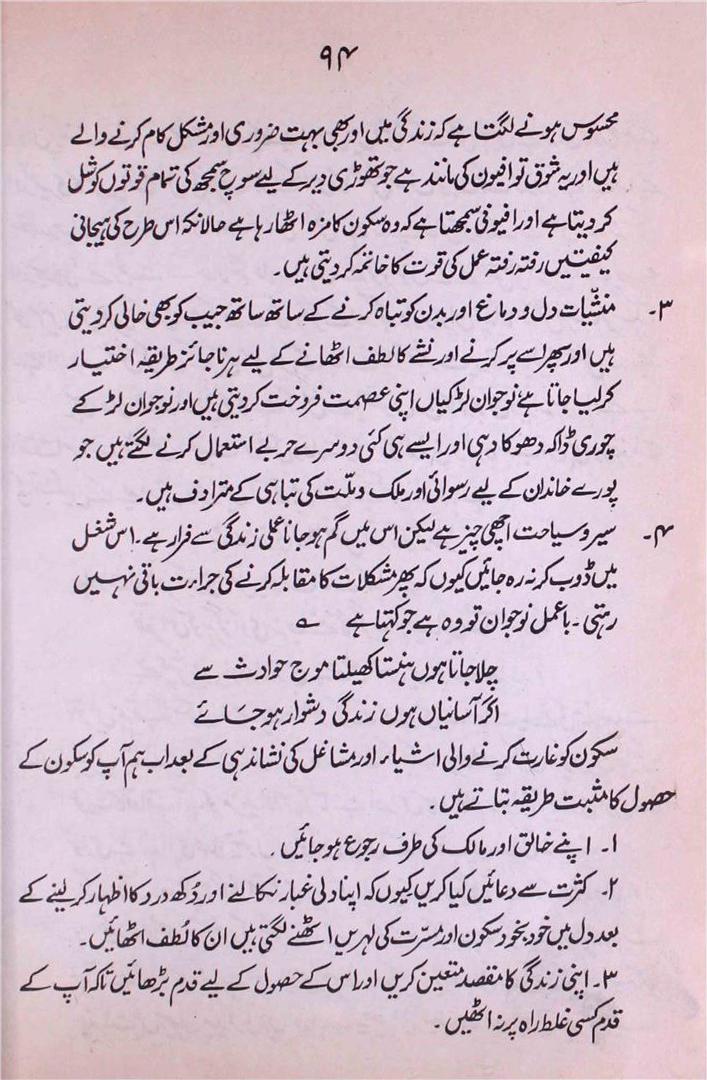 ۹۴
محسوس ہونے لگتا ہے کہ زندگی میں اور بھی بہت ضروری اور مشکل کام کرنے والے
ہیں اور یہ شوق تو افیون کی مانند ہے جو تھوڑی دیر کے لیے سوچ سمجھ کی تمام قوتوں کو شل
کر دیتا ہے اور افیونی سمجھتا ہے کہ وہ سکون کا مزہ اٹھا رہا ہے حالانکہ اس طرح کی ہیجانی
کیفیتیں رفتہ رفتہ عمل کی قوت کا خاتمہ کر دیتی ہیں۔
۳۔ منشّیات دل و دماغ اور بدن کو تباہ کرنے کے ساتھ ساتھ جیب کو بھی خالی کر دیتی
ہیں اور پھر اسے پر کرنے اور نشے کا لطف اٹھانے کے لیے ہر ناجائز طریقہ اختیار
کر لیا جاتا ہے نوجوان لڑکیاں اپنی عصمت فروخت کر دیتی ہیں اور نوجوان لڑکے
چوری ڈاکہ دھوکا دہی اور ایسے ہی کئی دوسرے حربے استعمال کرنے لگتے ہیں جو
پورے خاندان کے لیے رسوائی اور ملک و ملّت کی تباہی کے مترادف ہیں۔
۴۔ سیر و سیاحت اچھی چیز ہے لیکن اس میں گم ہو جانا عملی زندگی سے فرار ہے۔ اس شغل
میں ڈوب کر نہ رہ جائیں کیوں کہ پھر مشکلات کا مقابلہ کرنے کی جرارت باقی نہیں
رہتی۔ باعمل نوجوان تو وہ ہے جو کہتا ہے ؎
چلا جاتا ہوں ہنستا کھیلتا موج حوادث سے
اگر آسانیاں ہوں زندگی دشوار ہو جائے
سکون کو غارت کرنے والی اشیاء اور مشاغل کی نشاندہی کے بعد اب ہم آپ کو سکون کے
حصول کا مثبت طریقہ بتاتے ہیں۔
۱۔ اپنے خالق اور مالک کی طرف رجوع ہو جائیں۔
۲۔ کثرت سے دعائیں کیا کریں کیوں کہ اپنا دلی غبار نکالنے اور دُکھ درد کا اظہار کر لینے کے
بعد دل میں خود بخود سکون اور مسرّت کی لہریں اٹھنے لگتی ہیں ان کا لُطف اٹھائیں۔
۳۔ اپنی زندگی کا مقصد متعین کریں اور اس کے حصول کے لیے قدم بڑھائیں تاکہ آپ کے
قدم کسی غلط راہ پر نہ اٹھیں۔